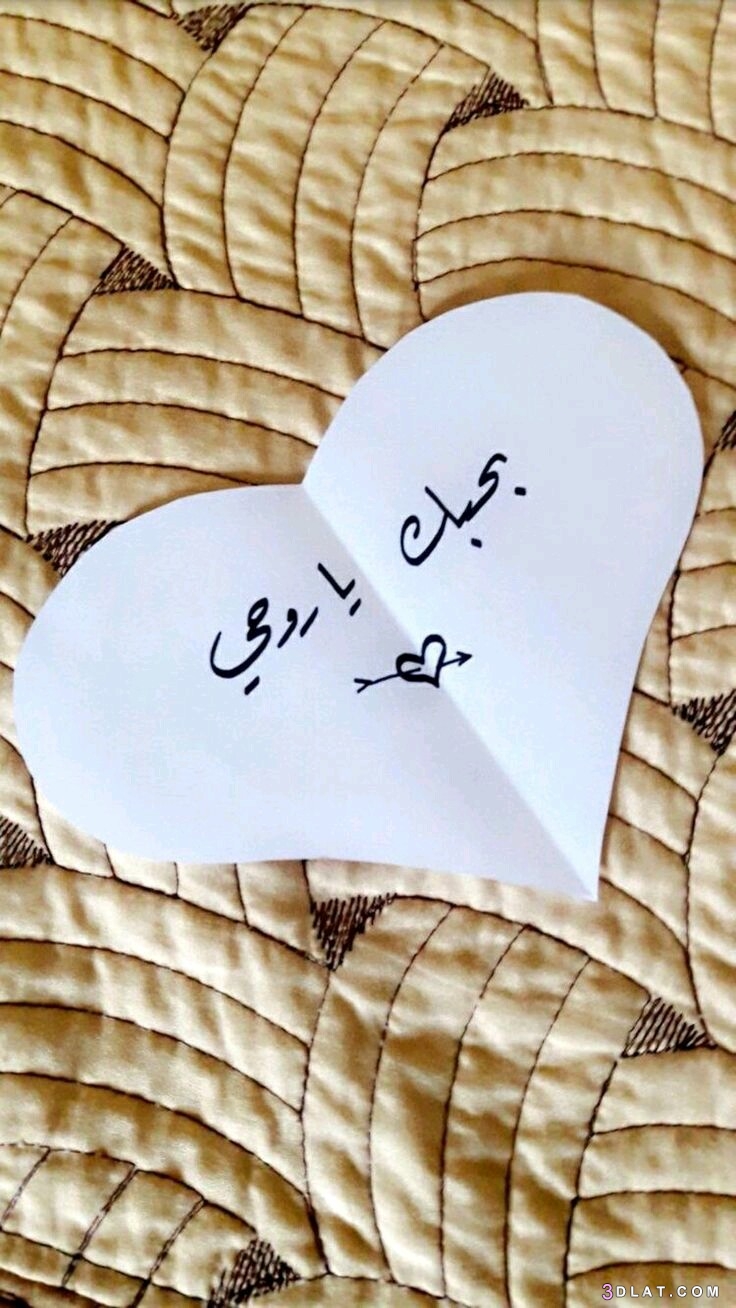 بحبك يا روحي
3DLAT.COM